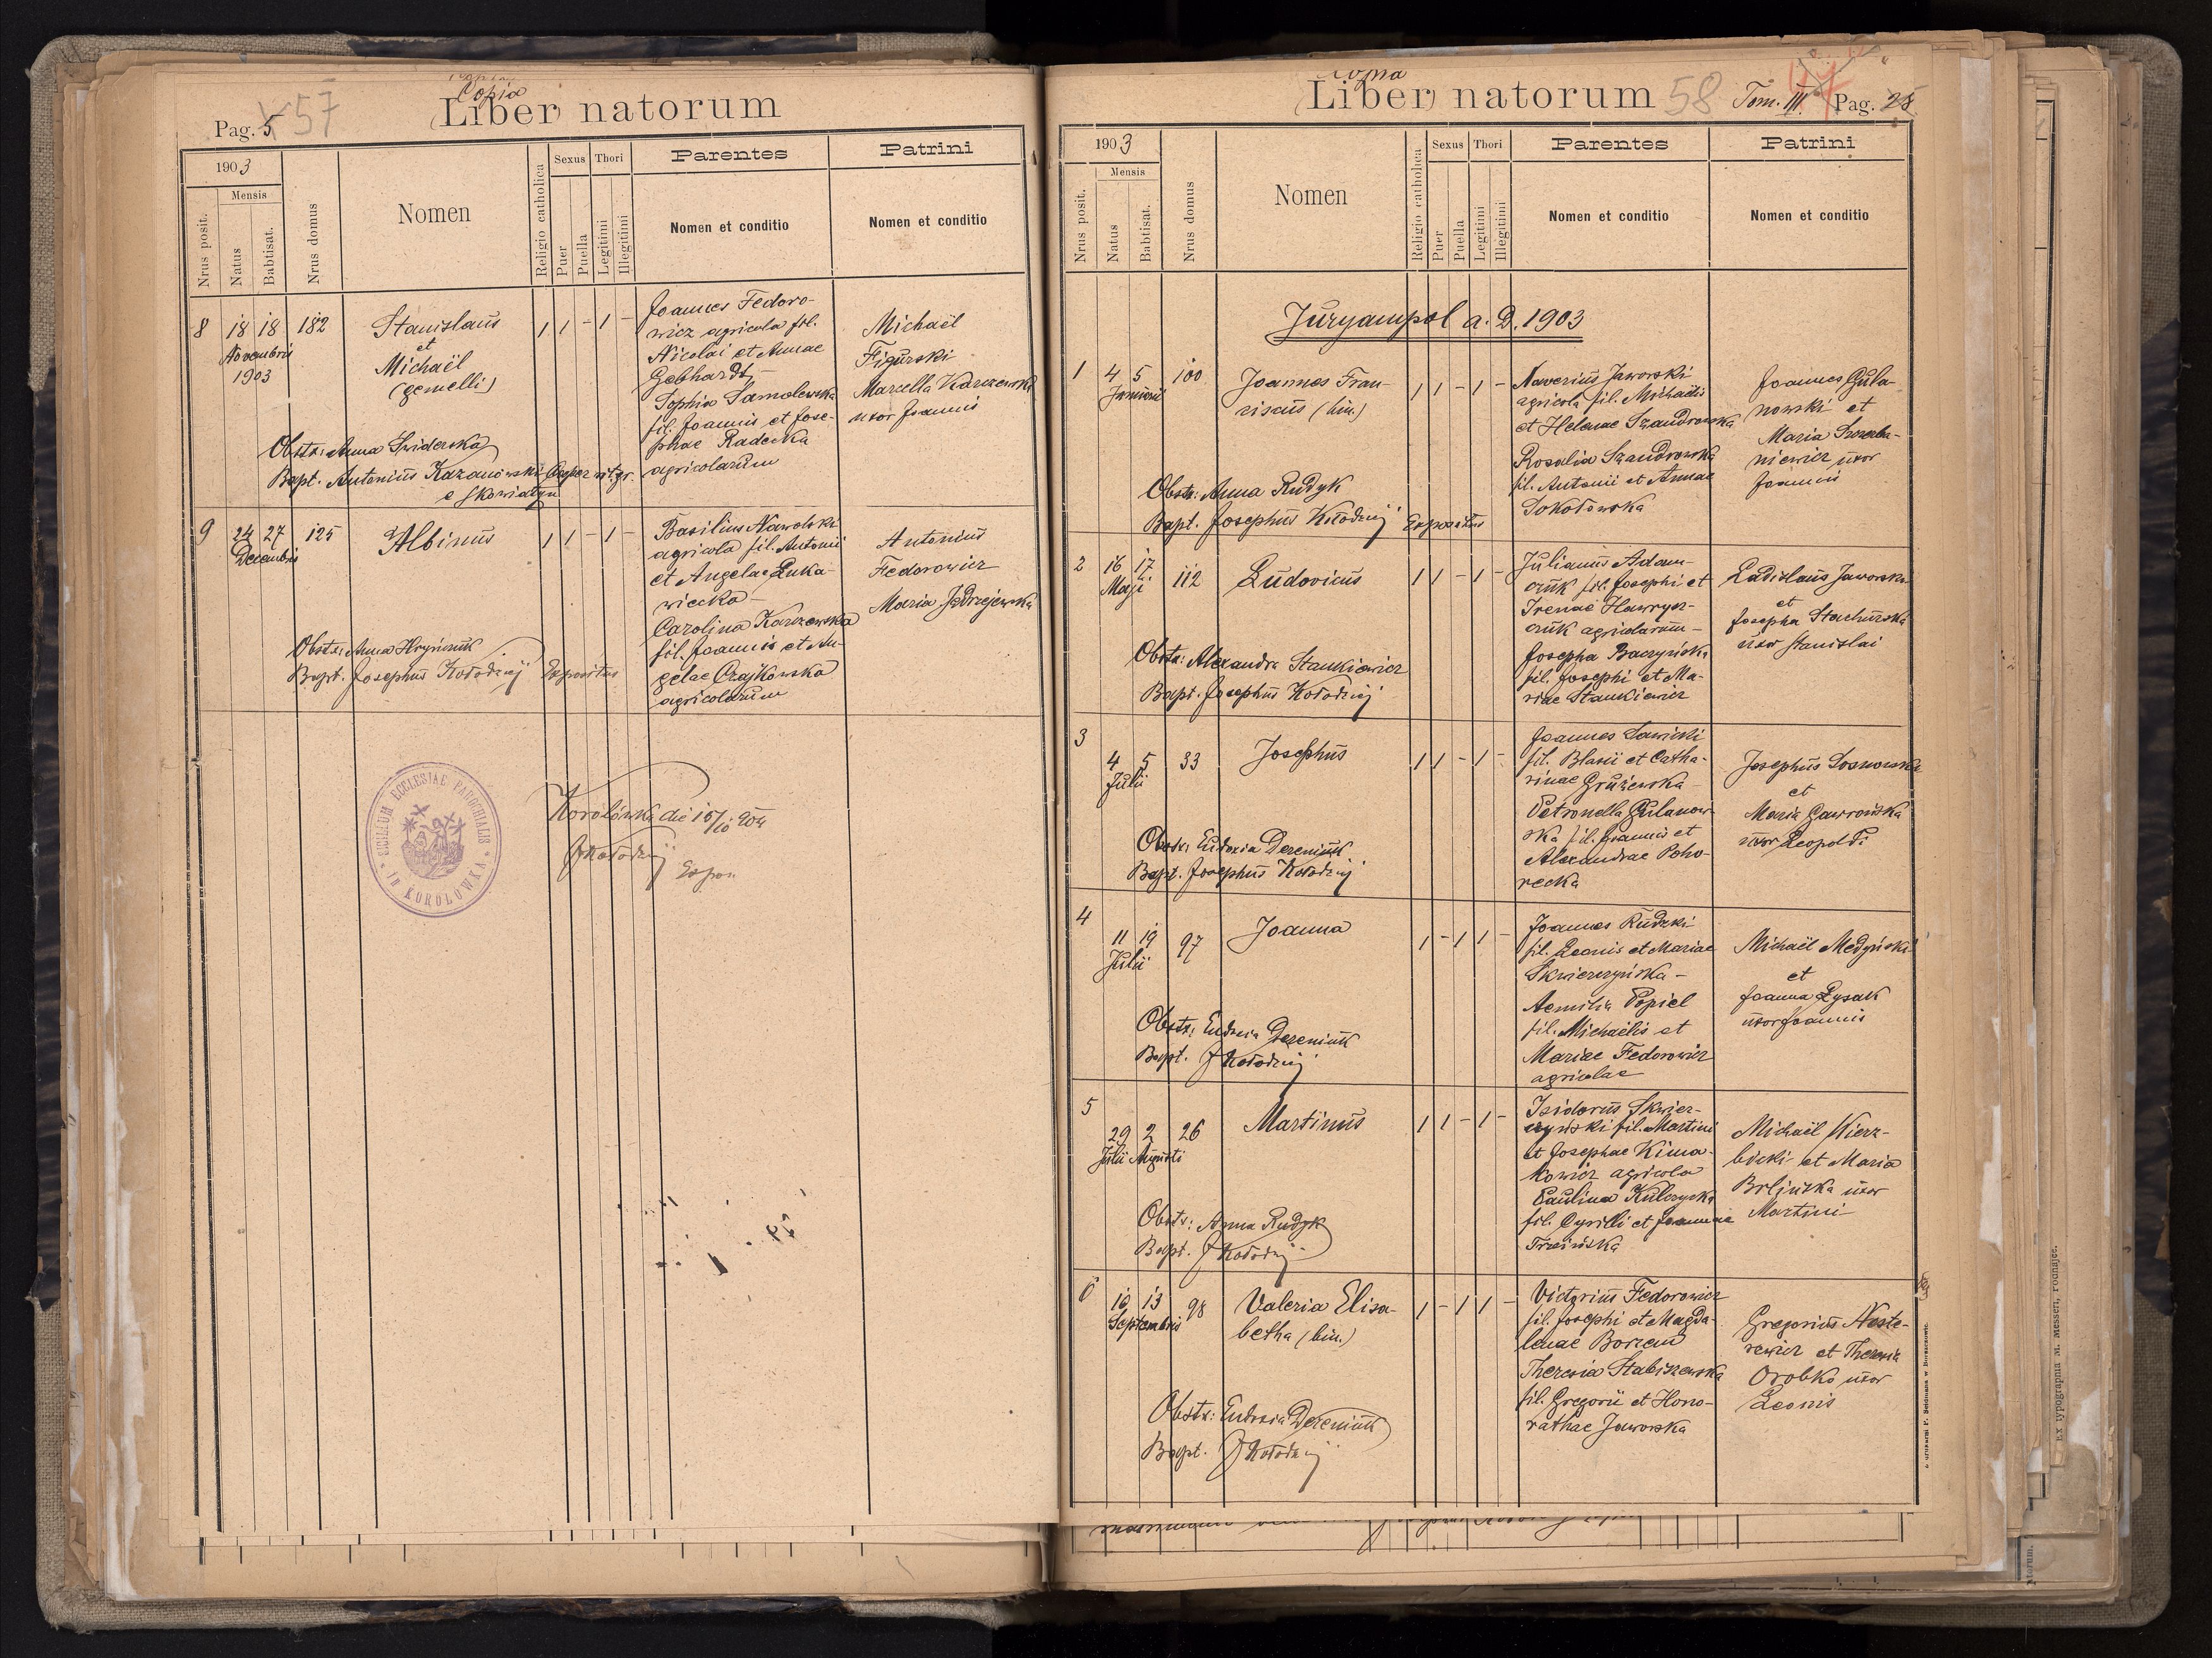 Copia
Liber natorum
Pag. 5
57
1903
Mensis
Nrus posit.
Natus
Babtisat.
Nrus domus
Nomen
Religio catholica
Sexus
Puer
Puella
Thori
Legitimi
Illegitimi
Parentes
Nomen et conditio
Patrini
Nomen et conditio
8 18 18 182
Novembris
1903
Stanislaus
et
Michaël
(gemelli)
1 1 - 1 -
Joannes Fedoro-
wicz agricola fil.
Nicolai et Annae
Gebhardt -
Sophia Samolewska
fil. Joannis et Jose-
phae Radecka
agricolarum
Michaël
Figurski
Marcella Karczewska
uxor Joannis
Obstx: Anna Swiderska
Bapt. Antonius Kazanowski Cooper rit. gr.
e Skowiatyn
9 24 27 125
Decembris
Albinus
1 1 - 1 -
Basilius Nawolski
agricola fil. Antonii
et Angelae Łuka-
wiecka -
Carolina Karczewska
fil. Joannis et An-
gelae Czajkowska
agricolarum
Antonius
Fedorowicz
Maria Jędrzejewska
Obstx: Anna Hryńczuk
Bapt. Josephus Kołodziej Expositus
SIGILLUM ECCLESIAE PAROCHIALIS
in KOROLÓWKA
Korolówka die 15/10 904
JKołodziej
Expon
Copia
Liber natorum
58
Tom. III. Pag. 28
1903
Mensis
Nrus posit.
Natus
Babtisat.
Nrus domus
Nomen
Religio catholica
Sexus
Puer
Puella
Thori
Legitimi
Illegitimi
Parentes
Nomen et conditio
Patrini
Nomen et conditio
Juryampol a. D. 1903
1 4 5 100
Januarii
Joannes Fran-
ciscus (bin.)
1 1 - 1 -
Xaverius Jaworski
agricola fil. Michaelis
et Helenae Szandrowska
Rosalia Szandrowska
fil. Antonii et Annae
Sokołowska
Joannes Gula-
nowski et
Maria Szczerba-
niewicz uxor
Joannis
Obstx: Anna Rudyk
Bapt. Josephus Kołodziej Expositus
2 16 17 112
Maji
Ludovicus
1 1 - 1 -
Julianus Adam-
czuk fil. Josephi et
Irenae Hawrysz-
czuk agricolarum -
Josepha Baczyńska
fil. Josephi et Ma-
riae Stankiewicz
Ladislaus Jaworski
et
Josepha Stachurska
uxor Stanislai
Obstx: Alexandra Stankiewicz
Bapt. Josephus Kołodziej
3
4 5 33
Julii
Josephus
1 1 - 1 -
Joannes Sawicki
fil. Blasii et Catha-
rinae Gružewska -
Petronella Gulanow-
ska fil. Joannis et
Alexandrae Poho-
recka
Josephus Sosnowski
et
Maria Gawrońska
uxor Leopoldi
Obstx: Eudoxia Dereniuk
Bapt. Josephus Kołodziej
4
11 19 97
Julii
Joanna
1 - 1 1 -
Joannes Rudzki
fil. Leonis et Mariae
Skwierczyńska -
Aemilia Popiel
fil. Michaëlis et
Mariae Fedorowicz
agricolae
Michaël Medyński
et
Joanna Łysak
uxor Joannis
Obstx: Eudoxia Dereniuk
Bapt. JKołodziej
5
29 2 26
Julii Augusti
Martinus
1 1 - 1 -
Isidorus Skwier-
czyński fil. Martini
et Josephae Kima-
kowicz agricola
Paulina Kulczycka
fil. Cyrilli et Joannae
Michaël Wierz-
bicki et Maria
uxor
Martini
Obstx: Anna Rudyk
Bapt. JKołodziej
6
10 13 98
Septembris
Valeria Elisa-
betha (bin.)
1 - 1 1 -
Victorius Fedorowicz
fil. Josephi et Magda-
lenae Borzem
Theresia Stabiszewska
fil. Gregorii et Hono-
rathae Jaworska
Gregorius Neste-
rewicz et Theresia
Orobko uxor
Leonis
Obstx: Eudoxia Dereniuk
Bapt. JKołodziej
Z drukarni F. Seidmana w Borszczowie.
Ex typographia M. Messeri,